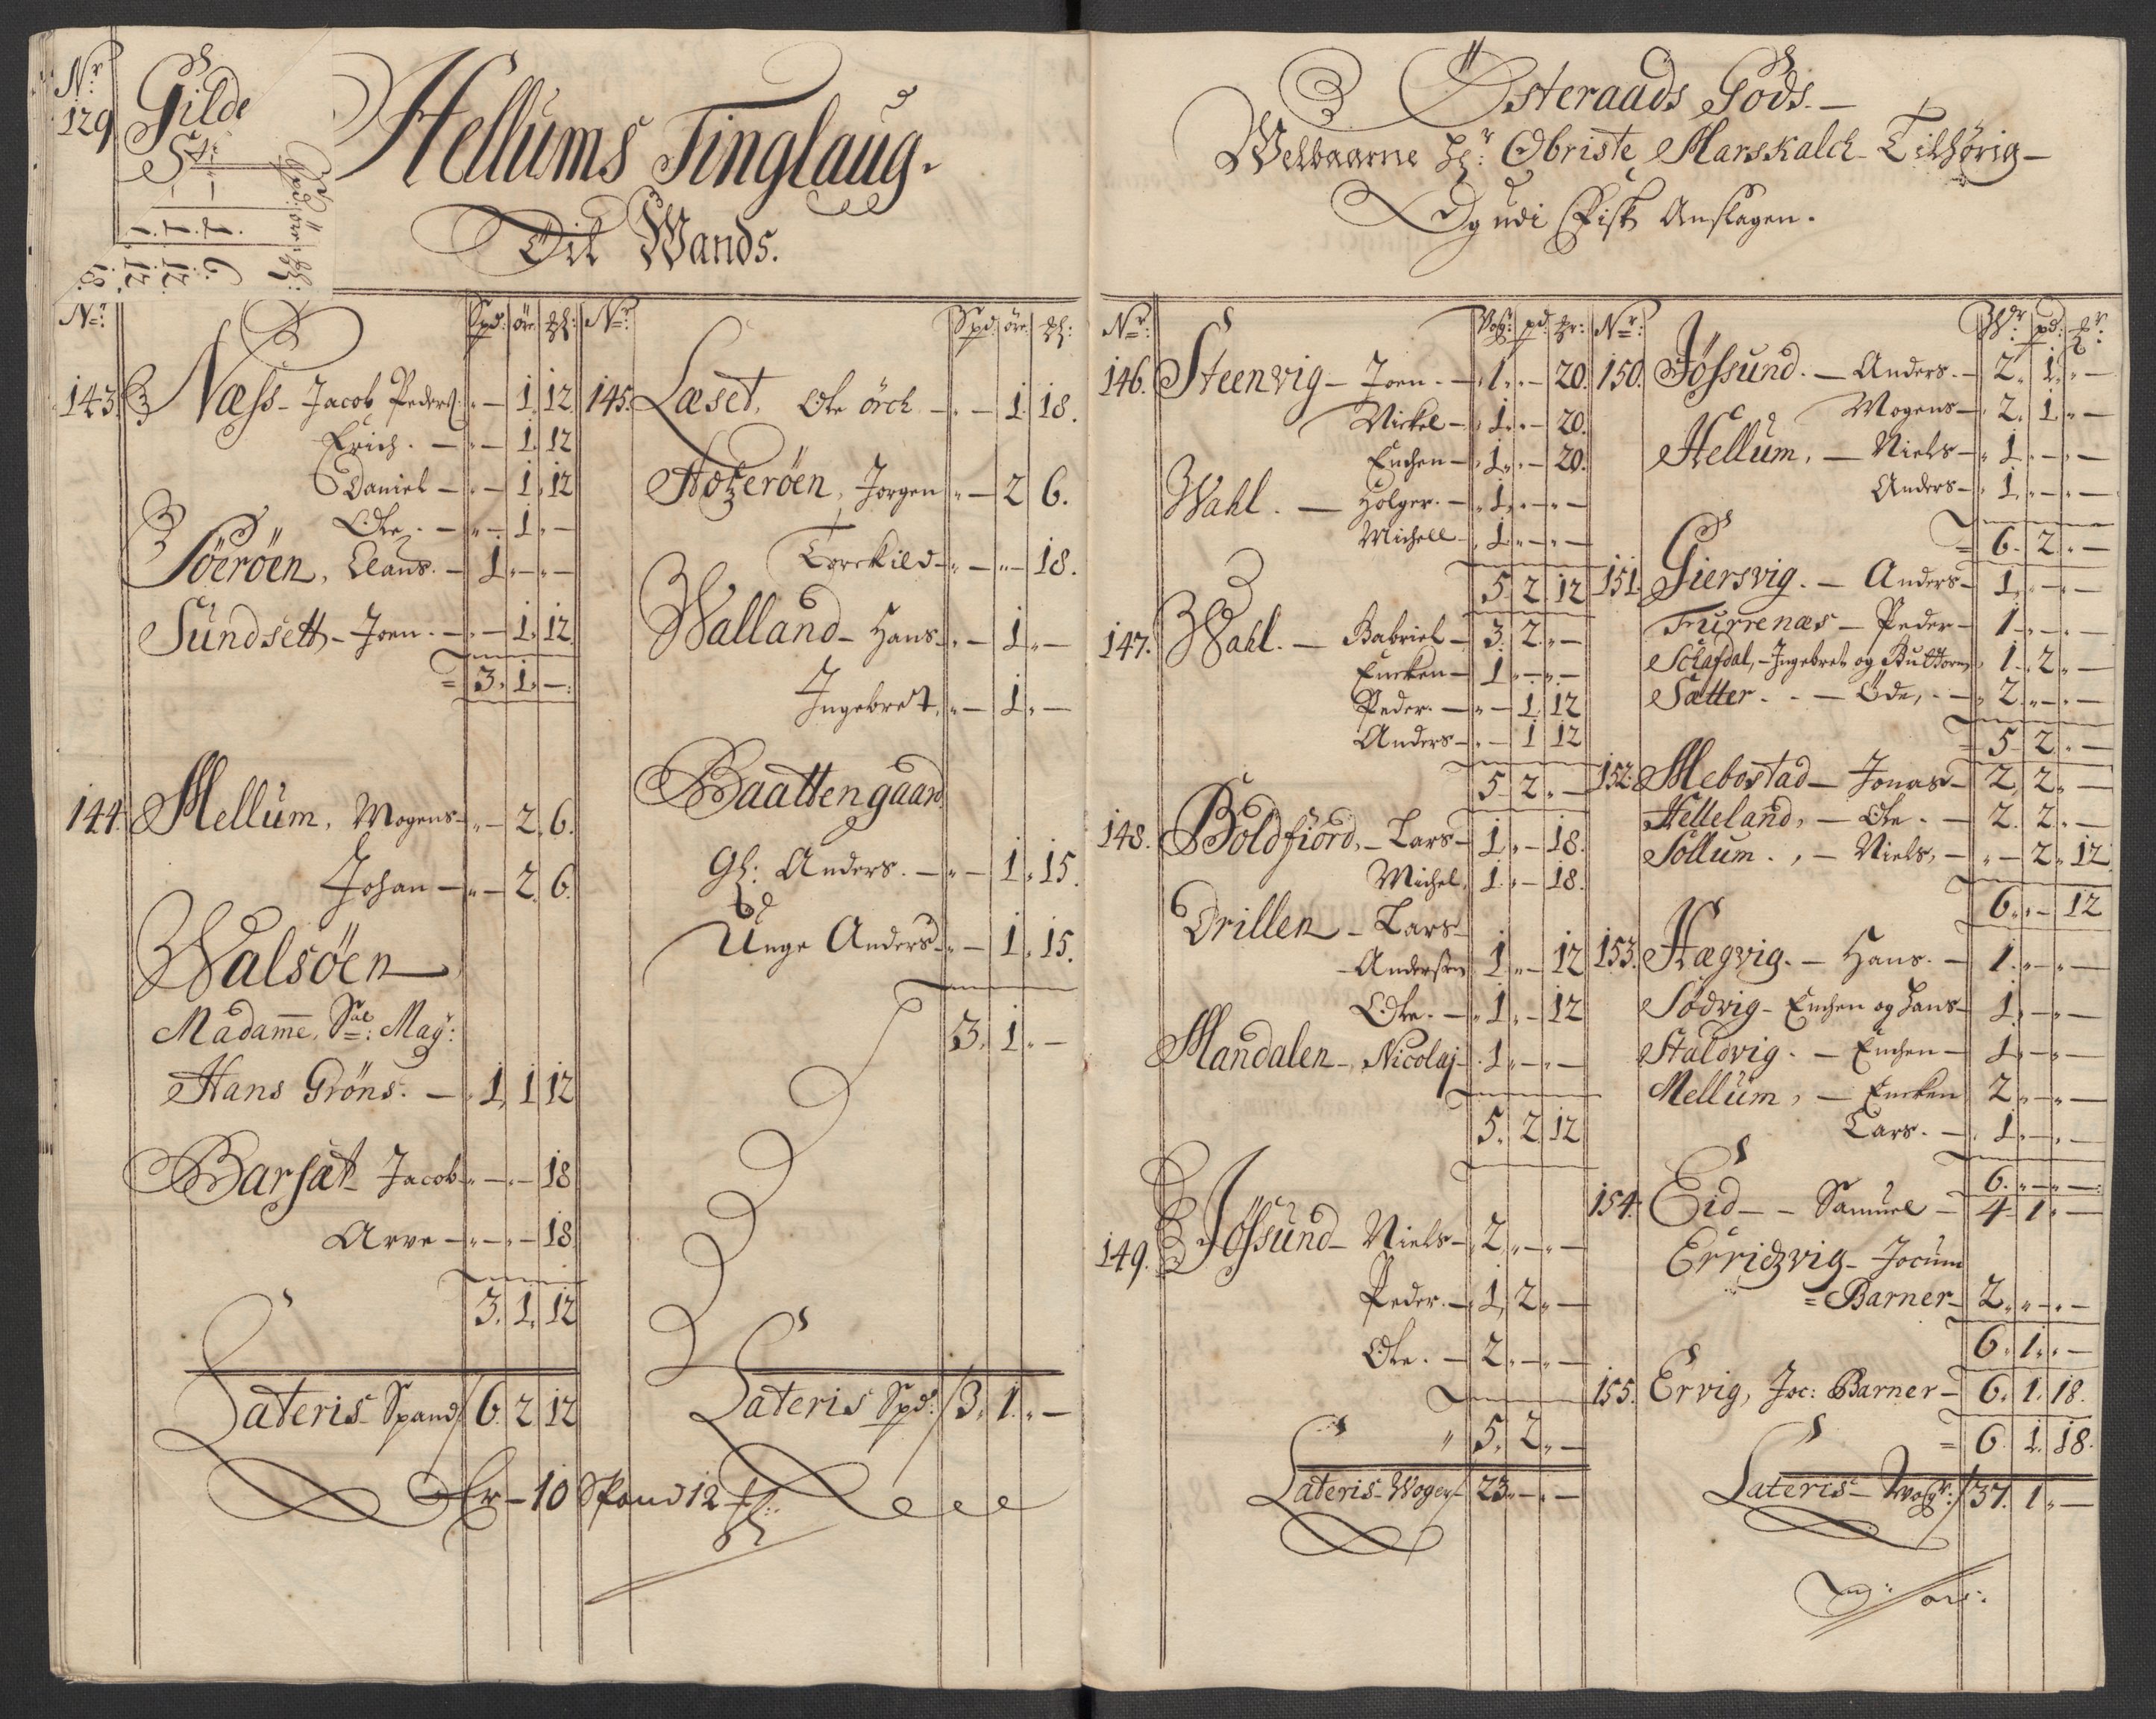 Nr
129 Gilde
Hellums Tinglaug.
Dit Wands.
Nr: Spd: ör: Nr: Spd: ör:
143. Næss - Jacob Peders: " — 1. 12
Erich. — " — 1. 12
Daniel — " — 1. 12
Ole. — " — 1. " —
Söeröen, Claus. — 1. " — " —
Sundsett, - Joen. — " — 1. 12
= 3. 1. —
144. Mellum, Mogens — " — 2. 6.
Johan — " — 2. 6.
Walsöen
Madame, Sal: May:
Hans Gröns. — 1. 1. 12
Barsæt - Jacob — " — " — 18
Arve — " — " — 18
3. 1. 12
Lateris Spand / 6. 2. 12
145. Læset, Ole örch — " — 1. 18.
Hotzeröen, Jorgen " — 2. 6.
Torckild — " — " — 18.
Walland - Hans. " — 1. " —
Ingebret, " — 1. " —
Baattengaard
Gl: Anders. — " — 1. 15.
Unge Anders — " — 1. 15.
3. 1. " —
Lateris Spd: / 3. 1. " —
Er - 10 Spand 12
Österaads Gods. —
Welbaarne Hr: Obriste Marskalck Tilhörig —
Og udi Fisk Anslagen.
Nr: Wog: pd: Nr: pd:
146. Steenvig - Joen. — 1. " — 20.
Mickel — 1. " — 20.
Enchen — 1. " — 20.
Wahl. — Holger. — 1. " — " —
Michell — 1. " — " —
5. 2. 12
147. Wahl. — Gabriel — 3. 2. " —
Encken — 1. " — " —
Peder. — " — 1. 12
Anders — " — 1. 12
5. 2. " —
148. Boldfiord, - Lars — 1. " — 18.
Michel, 1. " — 18.
Drillen - Lars
- Andersen 1. " — 12
Ole. — 1. " — 12
Mandalen -, Nicolaj — 1. " — " —
5. 2. 12
149. Jössund - Niels — 2. " — " —
Peder. — 1. 2. " —
Ole. — 2. " — " —
" 5. 2. " —
Lateris - Woger / 23. " — " —
150. Jössund. — Anders. — 2. 1. " —
Mogens — 2. 1. " —
Hellum, — Niels — 1. " — " —
Anders — 1. " — " —
= 6. 2. " —
151. Giersvig. — Anders — 1. " — " —
Furrenæs — Peder — 1. " — " —
Sclafdal, - Ingebret og Guttorm, 1. 2. " —
Sætter. — Öde, — 2. " — " —
= 5. 2. " —
152. Mebostad — Jonas — 2. 2. " —
Helleland, — Ole. — 2. 2. " —
Sollum., — Niels, — " — 2. 12
6. " — 12
153. Hægvig. — Hans. — 1. " — " —
Södvig - Enchen og Hans — 1. " — " —
Staldvig. — Enchen — 1. " — " —
Mellum, — Encken 2. " — " —
Lars. — 1. " — " —
6. " — " —
154. Eid — Samuel — 4. 1. " —
Erridzvig - Jocum
= Barner — 2. " — " —
6. 1. " —
155. Ervig, Joc: Barner — 6. 1. 18.
= 6. 1. 18.
Lateris - Wogr: / 37. 1. " —